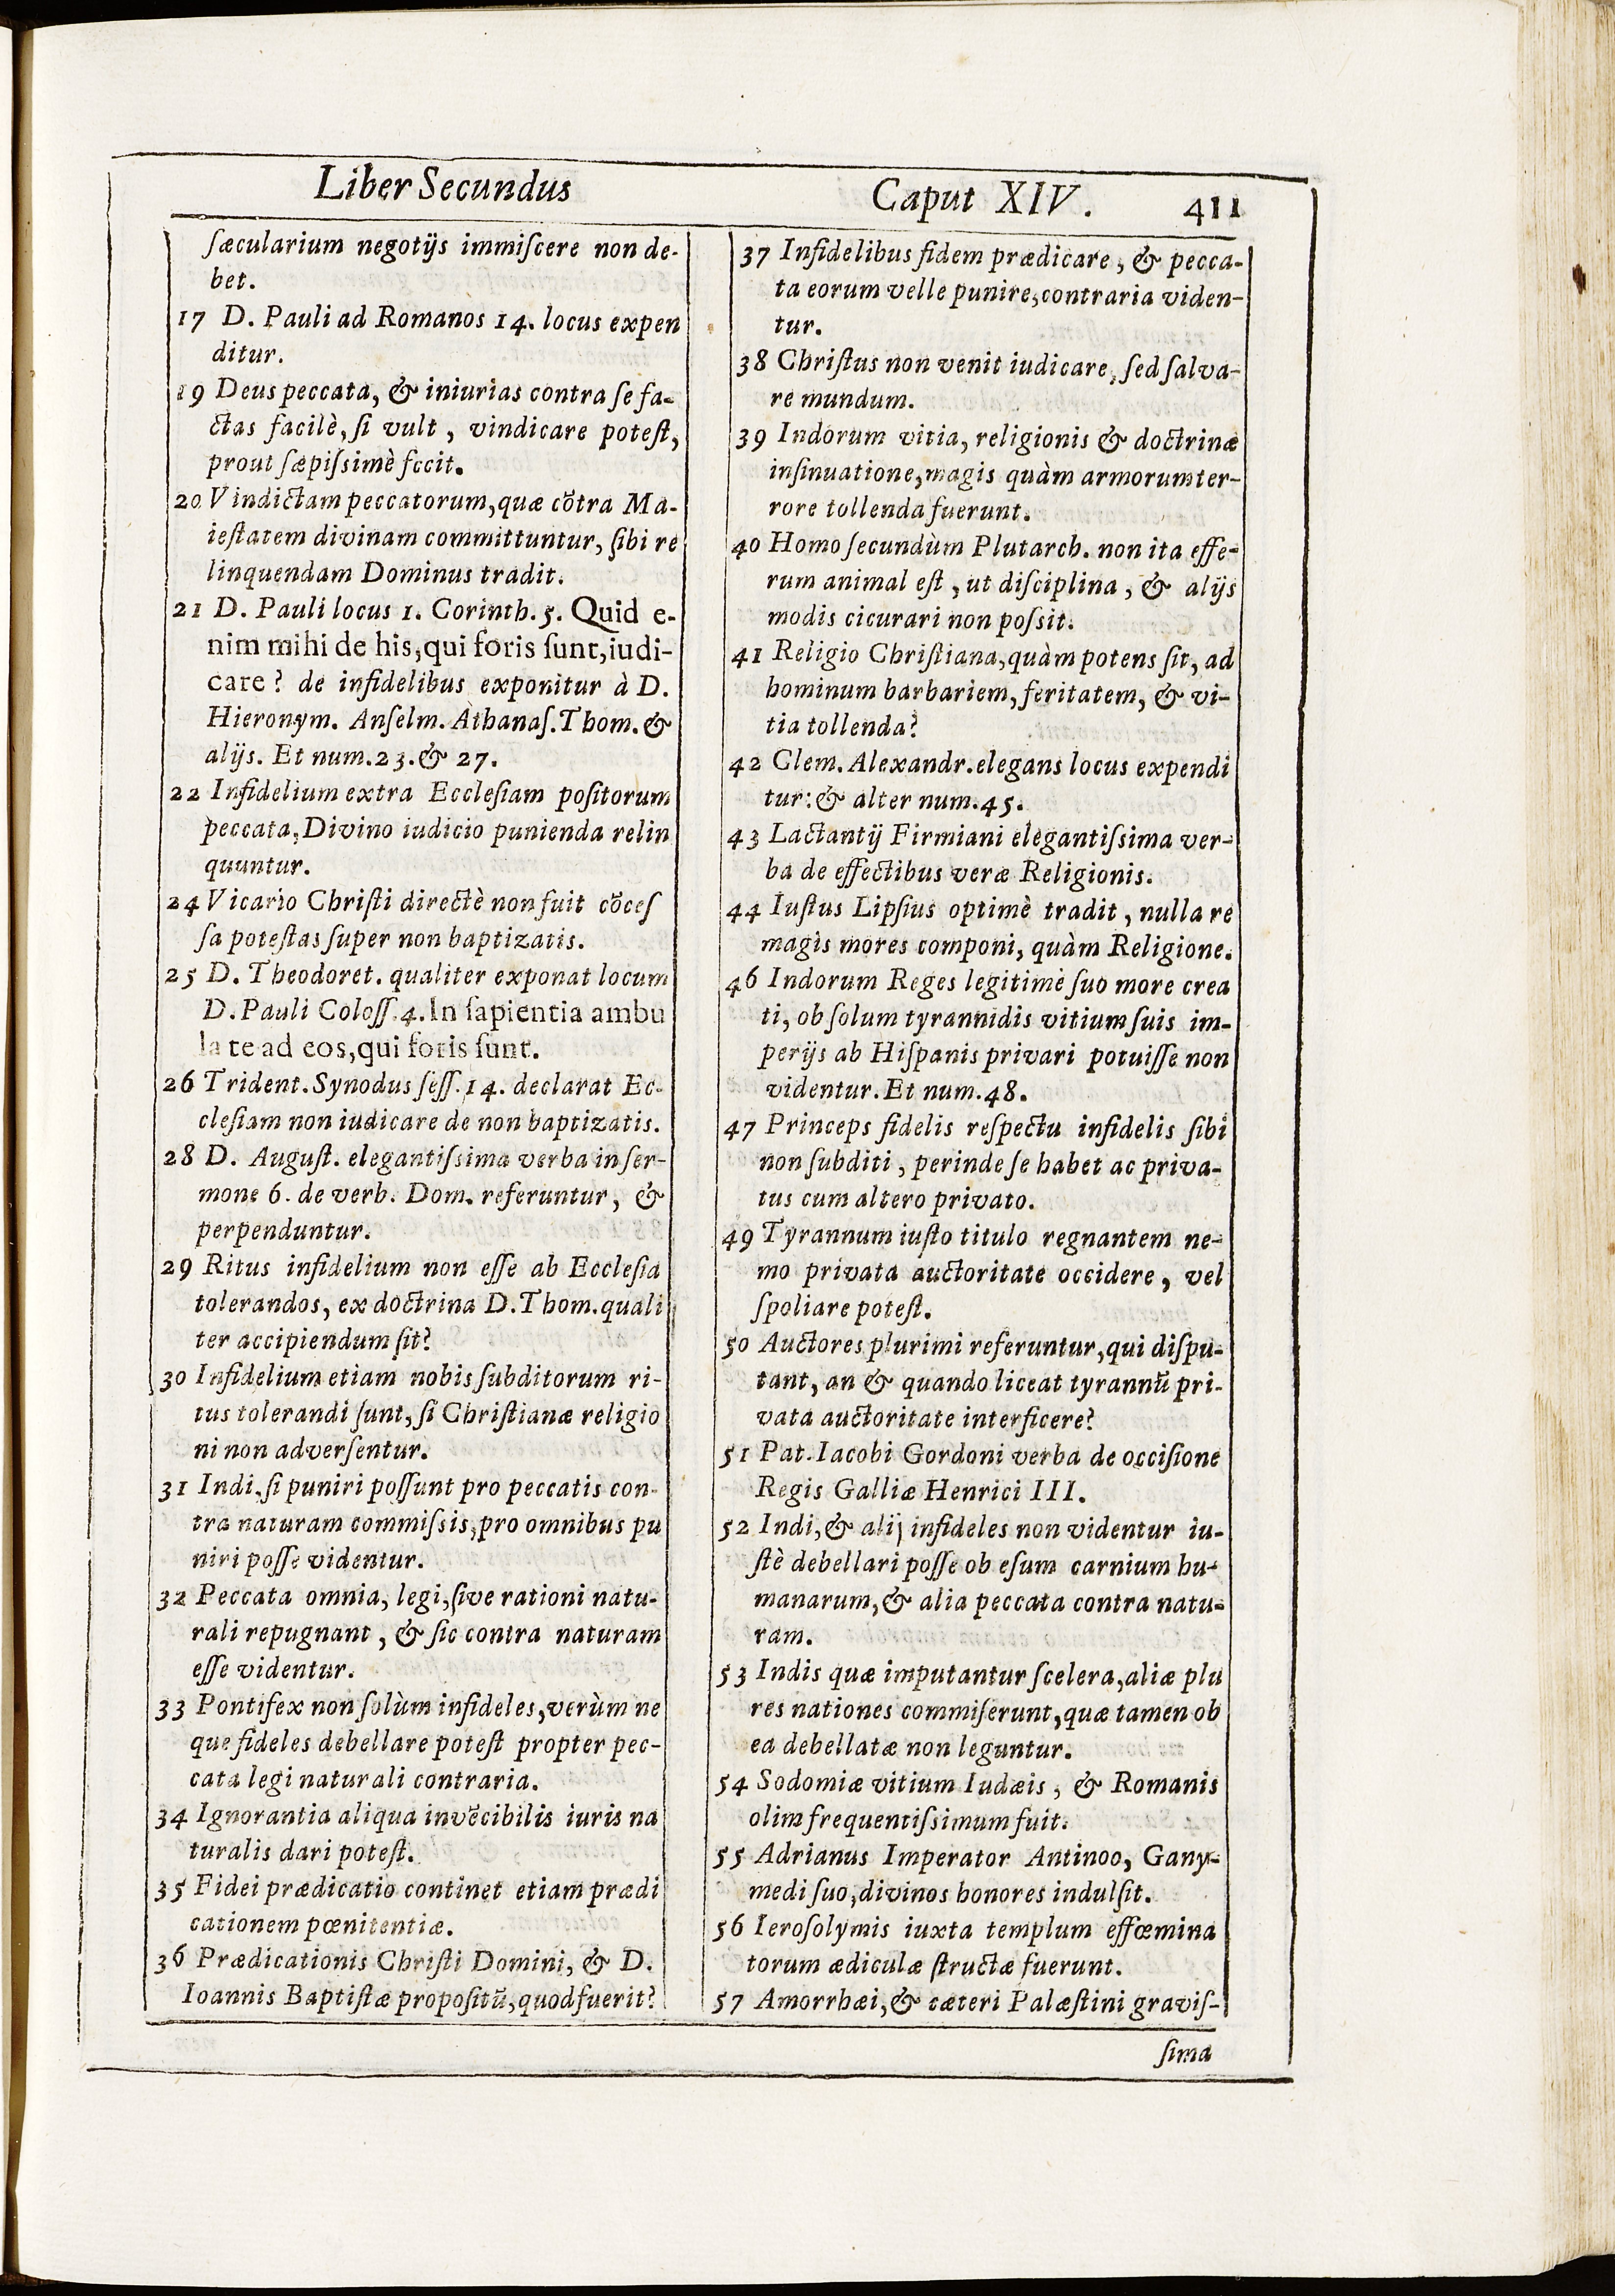 Liber Secundus
Caput XIV.
411
ſæcularium negotijs immiſcere non de-
bet.
17 D. Pauli ad Romanos 14. locus expen
ditur.
19 Deus peccata, & iniurias contra ſe fa-
ctas facilè, ſi vult, vindicare poteſt,
prout ſæpiſsimè fecit.
20 Vindictam peccatorum, quæ cõtra Ma-
ieſtatem divinam committuntur, ſibi re
linquendam Dominus tradit.
21 D. Pauli locus 1. Corinth. 5. Quid e-
nim mihi de his, qui foris ſunt, iudi-
care? de infidelibus exponitur à D.
Hieronym. Anſelm. Athanaſ. Thom. &
alijs. Et num. 23. & 27.
22 Infidelium extra Eccleſiam poſitorum
peccata, Divino iudicio punienda relin
quuntur.
24 Vicario Chriſti directè non fuit cõceſ
ſa poteſtas ſuper non baptizatis.
25 D. Theodoret. qualiter exponat locum
D. Pauli Coloſſ. 4. In ſapientia ambu
la te ad eos, qui foris ſunt.
26 Trident. Synodus ſeſſ. 14. declarat Ec-
cleſiam non iudicare de non baptizatis.
28 D. Auguſt. elegantiſsima verba in ſer-
mone 6. de verb. Dom. referuntur, &
perpenduntur.
29 Ritus infidelium non eſſe ab Eccleſia
tolerandos, ex doctrina D. Thom. quali
ter accipiendum ſit?
30 Infidelium etiam nobis ſubditorum ri-
tus tolerandi ſunt, ſi Chriſtianæ religio
ni non adverſentur.
31 Indi, ſi puniri poſſunt pro peccatis con-
tra naturam commiſsis, pro omnibus pu
niri poſſe videntur.
32 Peccata omnia, legi, ſive rationi natu-
rali repugnant, & ſic contra naturam
eſſe videntur.
33 Pontifex non ſolùm infideles, verùm ne
que fideles debellare poteſt propter pec-
cata legi naturali contraria.
34 Ignorantia aliqua invẽcibilis iuris na
turalis dari poteſt.
35 Fidei prædicatio continet etiam prædi
cationem pœnitentiæ.
36 Prædicationis Chriſti Domini, & D.
Ioannis Baptiſtæ propoſitũ, quod fuerit?
37 Infidelibus fidem prædicare, & pecca-
ta eorum velle punire, contraria viden-
tur.
38 Chriſtus non venit iudicare, ſed ſalva-
re mundum.
39 Indorum vitia, religionis & doctrinæ
inſinuatione, magis quàm armorum ter-
rore tollenda fuerunt.
40 Homo ſecundùm Plutarch. non ita effe-
rum animal eſt, ut diſciplina, & alijs
modis cicurari non poſsit.
41 Religio Chriſtiana, quàm potens ſit, ad
hominum barbariem, feritatem, & vi-
tia tollenda?
42 Clem. Alexandr. elegans locus expendi
tur: & alter num. 45.
43 Lactantij Firmiani elegantiſsima ver-
ba de effectibus veræ Religionis.
44 Iuſtus Lipſius optimè tradit, nulla re
magis mores componi, quàm Religione.
46 Indorum Reges legitimè ſuo more crea
ti, ob ſolum tyrannidis vitium ſuis im-
perijs ab Hiſpanis privari potuiſſe non
videntur. Et num. 48.
47 Princeps fidelis reſpectu infidelis ſibi
non ſubditi, perinde ſe habet ac priva-
tus cum altero privato.
49 Tyrannum iuſto titulo regnantem ne-
mo privata auctoritate occidere, vel
ſpoliare poteſt.
50 Auctores plurimi referuntur, qui diſpu-
tant, an & quando liceat tyrannũ pri-
vata auctoritate interficere?
51 Pat. Iacobi Gordoni verba de occiſione
Regis Galliæ Henrici III.
52 Indi, & alij infideles non videntur iu-
ſtè debellari poſſe ob eſum carnium hu-
manarum, & alia peccata contra natu-
ram.
53 Indis quæ imputantur ſcelera, aliæ plu
res nationes commiſerunt, quæ tamen ob
ea debellatæ non leguntur.
54 Sodomiæ vitium Iudæis, & Romanis
olim frequentiſsimum fuit.
55 Adrianus Imperator Antinoo, Gany-
medi ſuo, divinos honores indulſit.
56 Ieroſolymis iuxta templum effœmina
torum ædiculæ ſtructæ fuerunt.
57 Amorrhæi, & cæteri Palæſtini graviſ-
ſima